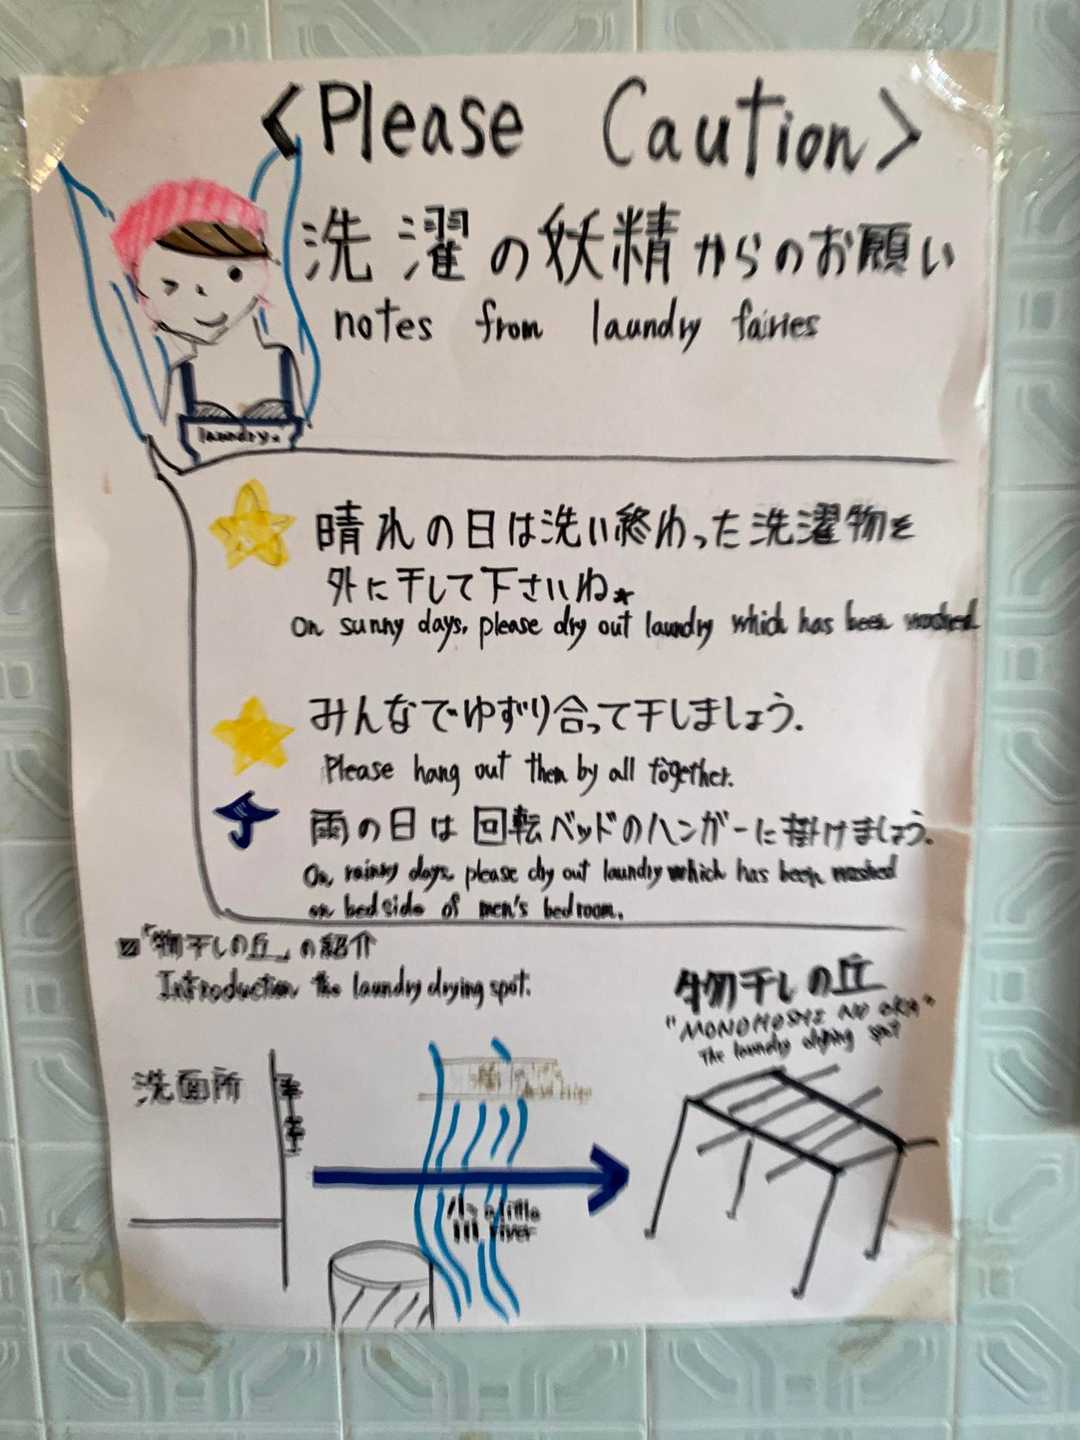 <Please Caution>
洗濯の妖精からのお願い
notes from laundry fairies
laundry.
晴れの日は洗い終わった洗濯物を
外に干して下さいね
On sunny days, please dry out laundry which has been washed
みんなでゆずり合って干しましょう.
Please hang out them by all together.
雨の日は回転ベッドのハンガーに掛けましょう.
On, rainy days, please dry out laundry which has been washed
on bedside of men's bedroom.
「物干しの丘」の紹介
Introduction the laundry drying spot.
物干しの丘
"MONOHOSHI NO OKA"
The laundry drying spot
洗面所
小川 a little
river